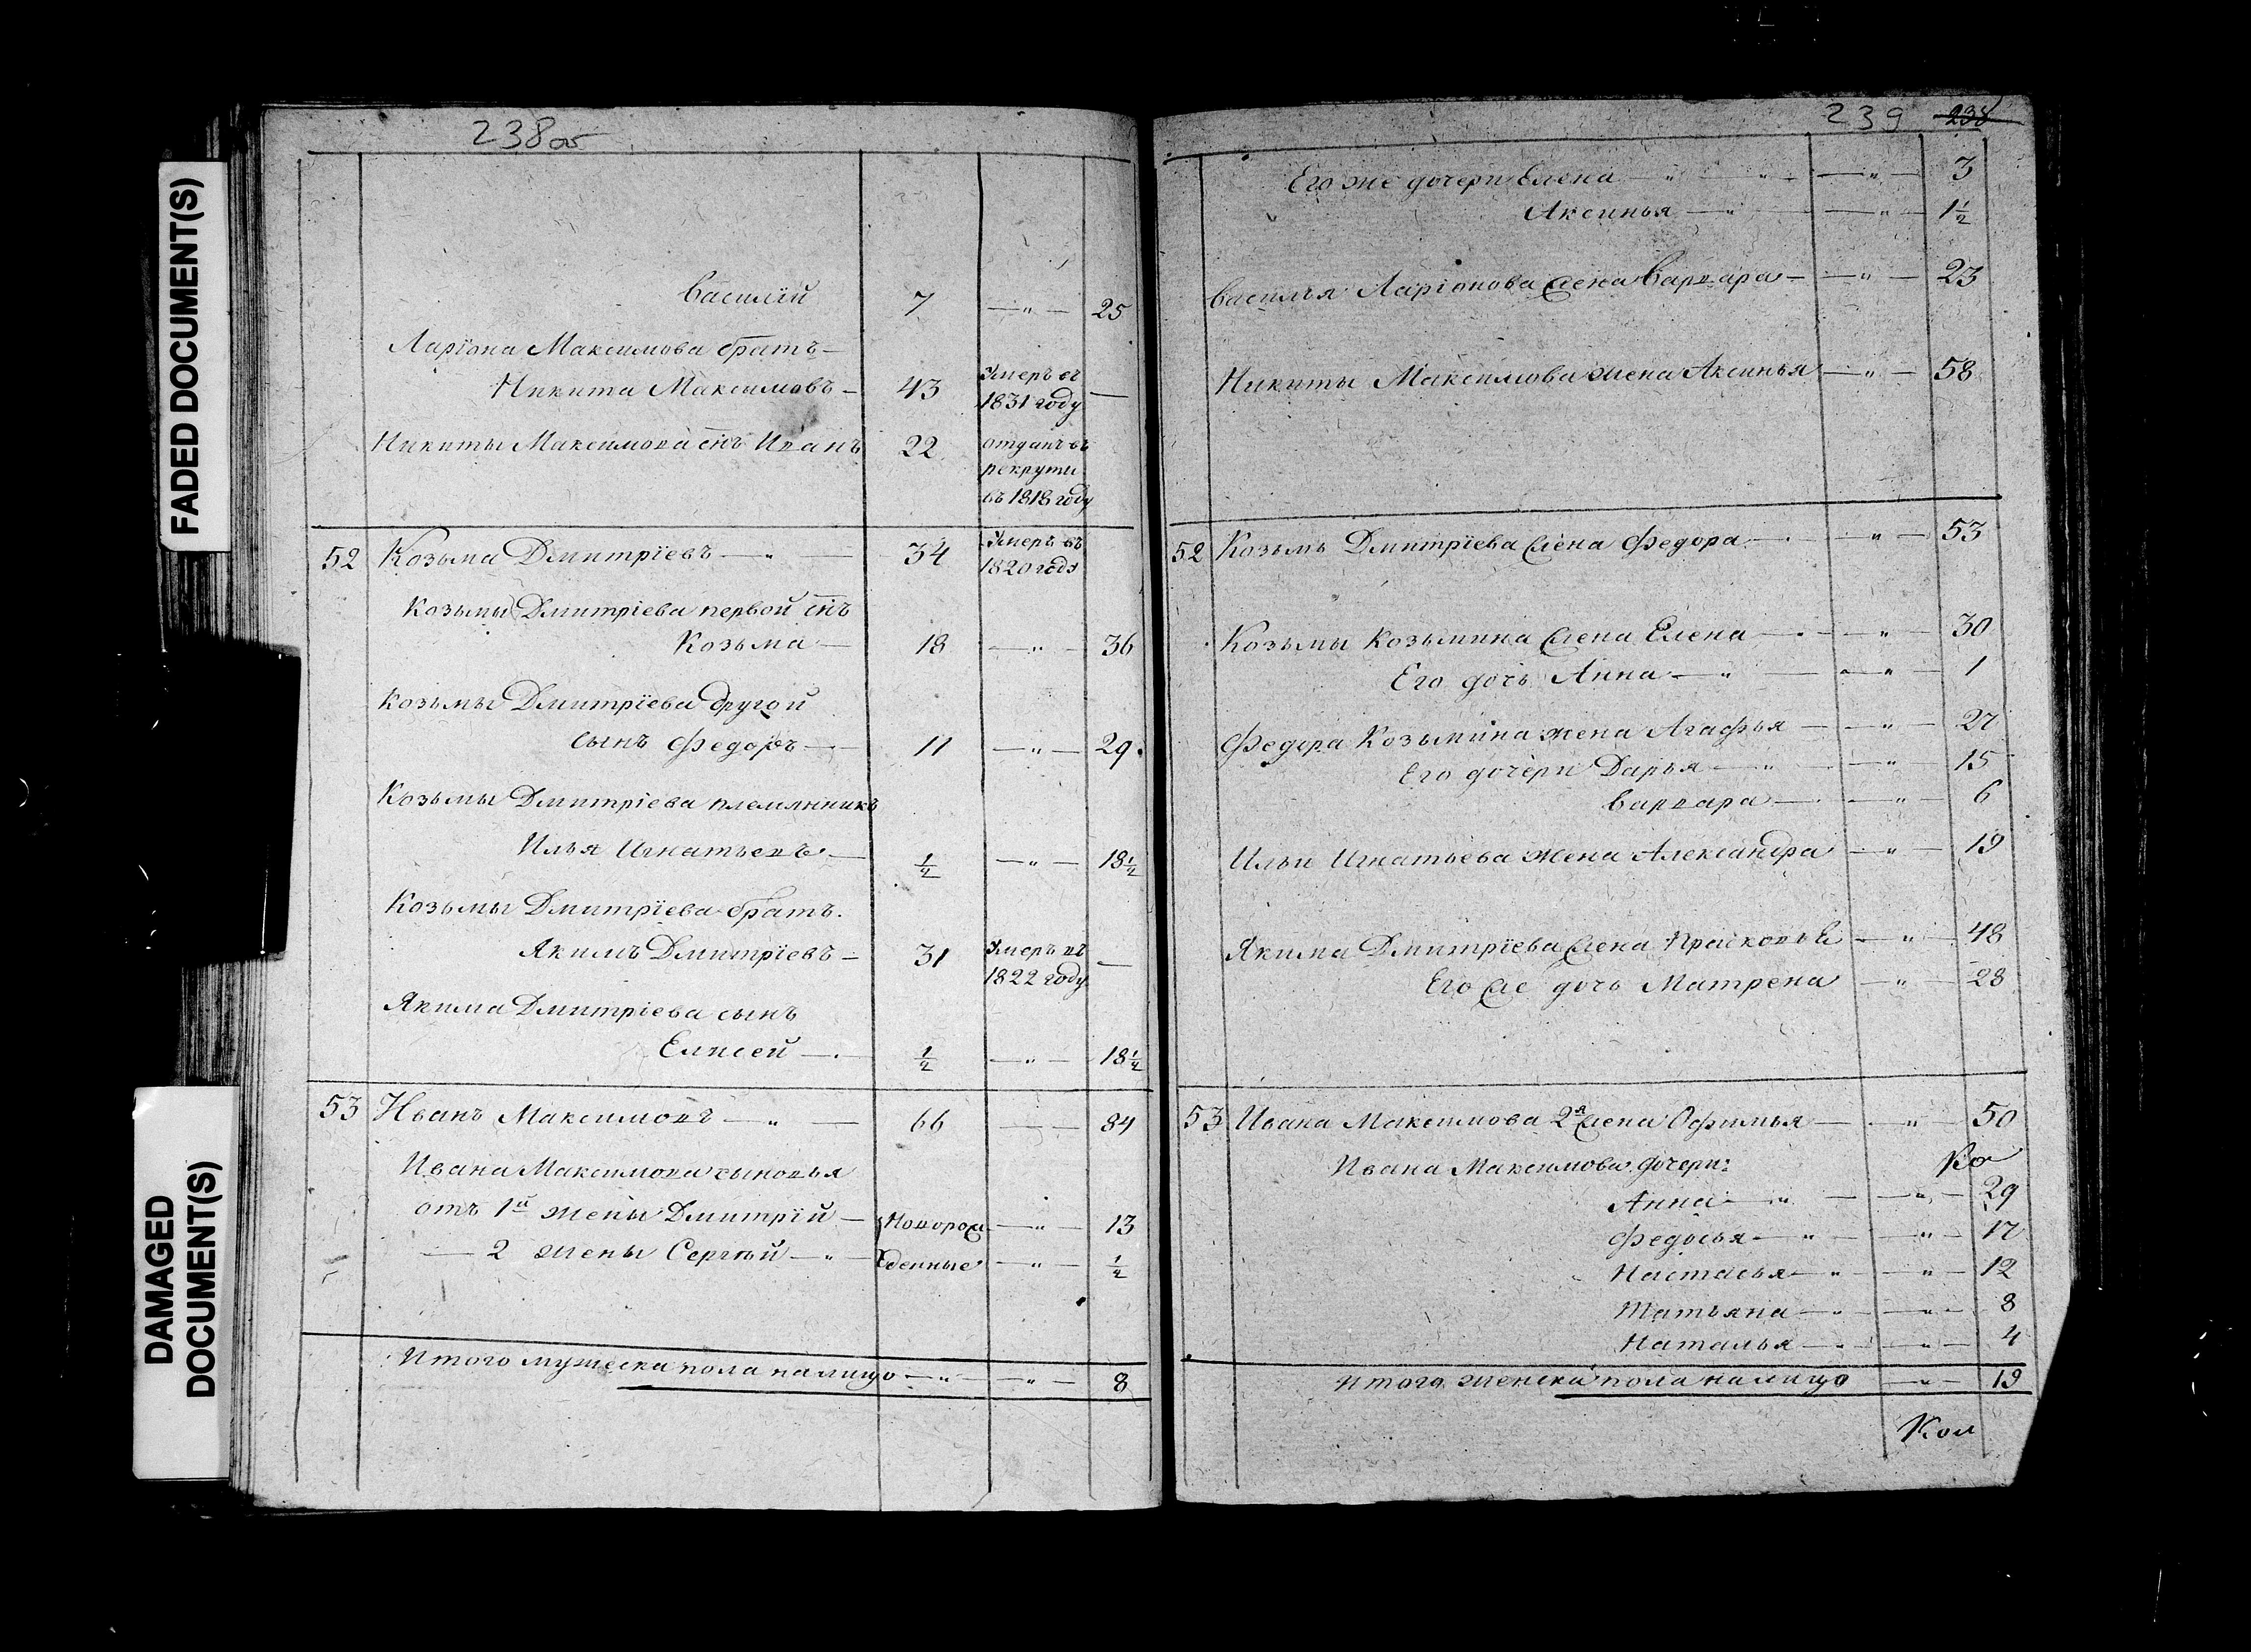 FADED DOCUMENT(S)
DAMAGED
DOCUMENT(S)
238об
Василій 7 —"— 25
Ларіона Максимова братъ—
Никита Максимовъ— 43 Умеръ въ
1831 году —
Никиты Максимова снъ Иванъ 22 отданъ въ
рекруты
въ 1818 году
52 Козьма Дмитріевъ —"— 34 Умеръ въ
1820 году
Козьмы Дмитріева первой снъ
Козьма — 18 —"— 36
Козьмы Дмитріева другой
сынъ Федоръ — 11 —"— 29.
Козьмы Дмитріева племянникъ
Илья Игнатьевъ — ½ —"— 18½
Козьмы Дмитріева братъ.
Якимъ Дмитріевъ — 31 Умеръ въ
1822 году —
Якима Дмитріева сынъ
Елисей — ½ —"— 18½
53 Иванъ Максимовъ —"— 66 — — 84
Ивана Максимова сыновья
отъ 1й жены Дмитрій — Новорож —"— 13
— 2 жены Сергѣй —"— денные —"— ½
Итого мужеска пола налицо —"— —"— 8
239 238
Его же дочери Елена —"— —"— 3
Аксинья —"— —"— 1½
Василья Ларіонова жена Варвара — —"— 23
Никиты Максимова жена Аксинья —"— 58
52 Козьмы Дмитріева жена Федора — —"— 53
Козьмы Козьмина жена Елена — —"— 30
Его дочь Анна —"— —"— 1
Федора Козьмина жена Агафья — —"— 27
Его дочери Дарья —"— —"— 15
Варвара — —"— 6
Ильи Игнатьева жена Александра —"— 19
Якима Дмитріева жена Прасковья —"— 48
Его же дочь Матрена —"— 28
53 Ивана Максимова 2я жена Офимья — —"— 50
Ивана Максимова дочери:
Анна —"— —"— 29
Федосья —"— —"— 17
Настасья —"— —"— 12
Татьяна —"— —"— 8
Наталья — —"— 4
Итого женска пола налицо —"— 19
Кол